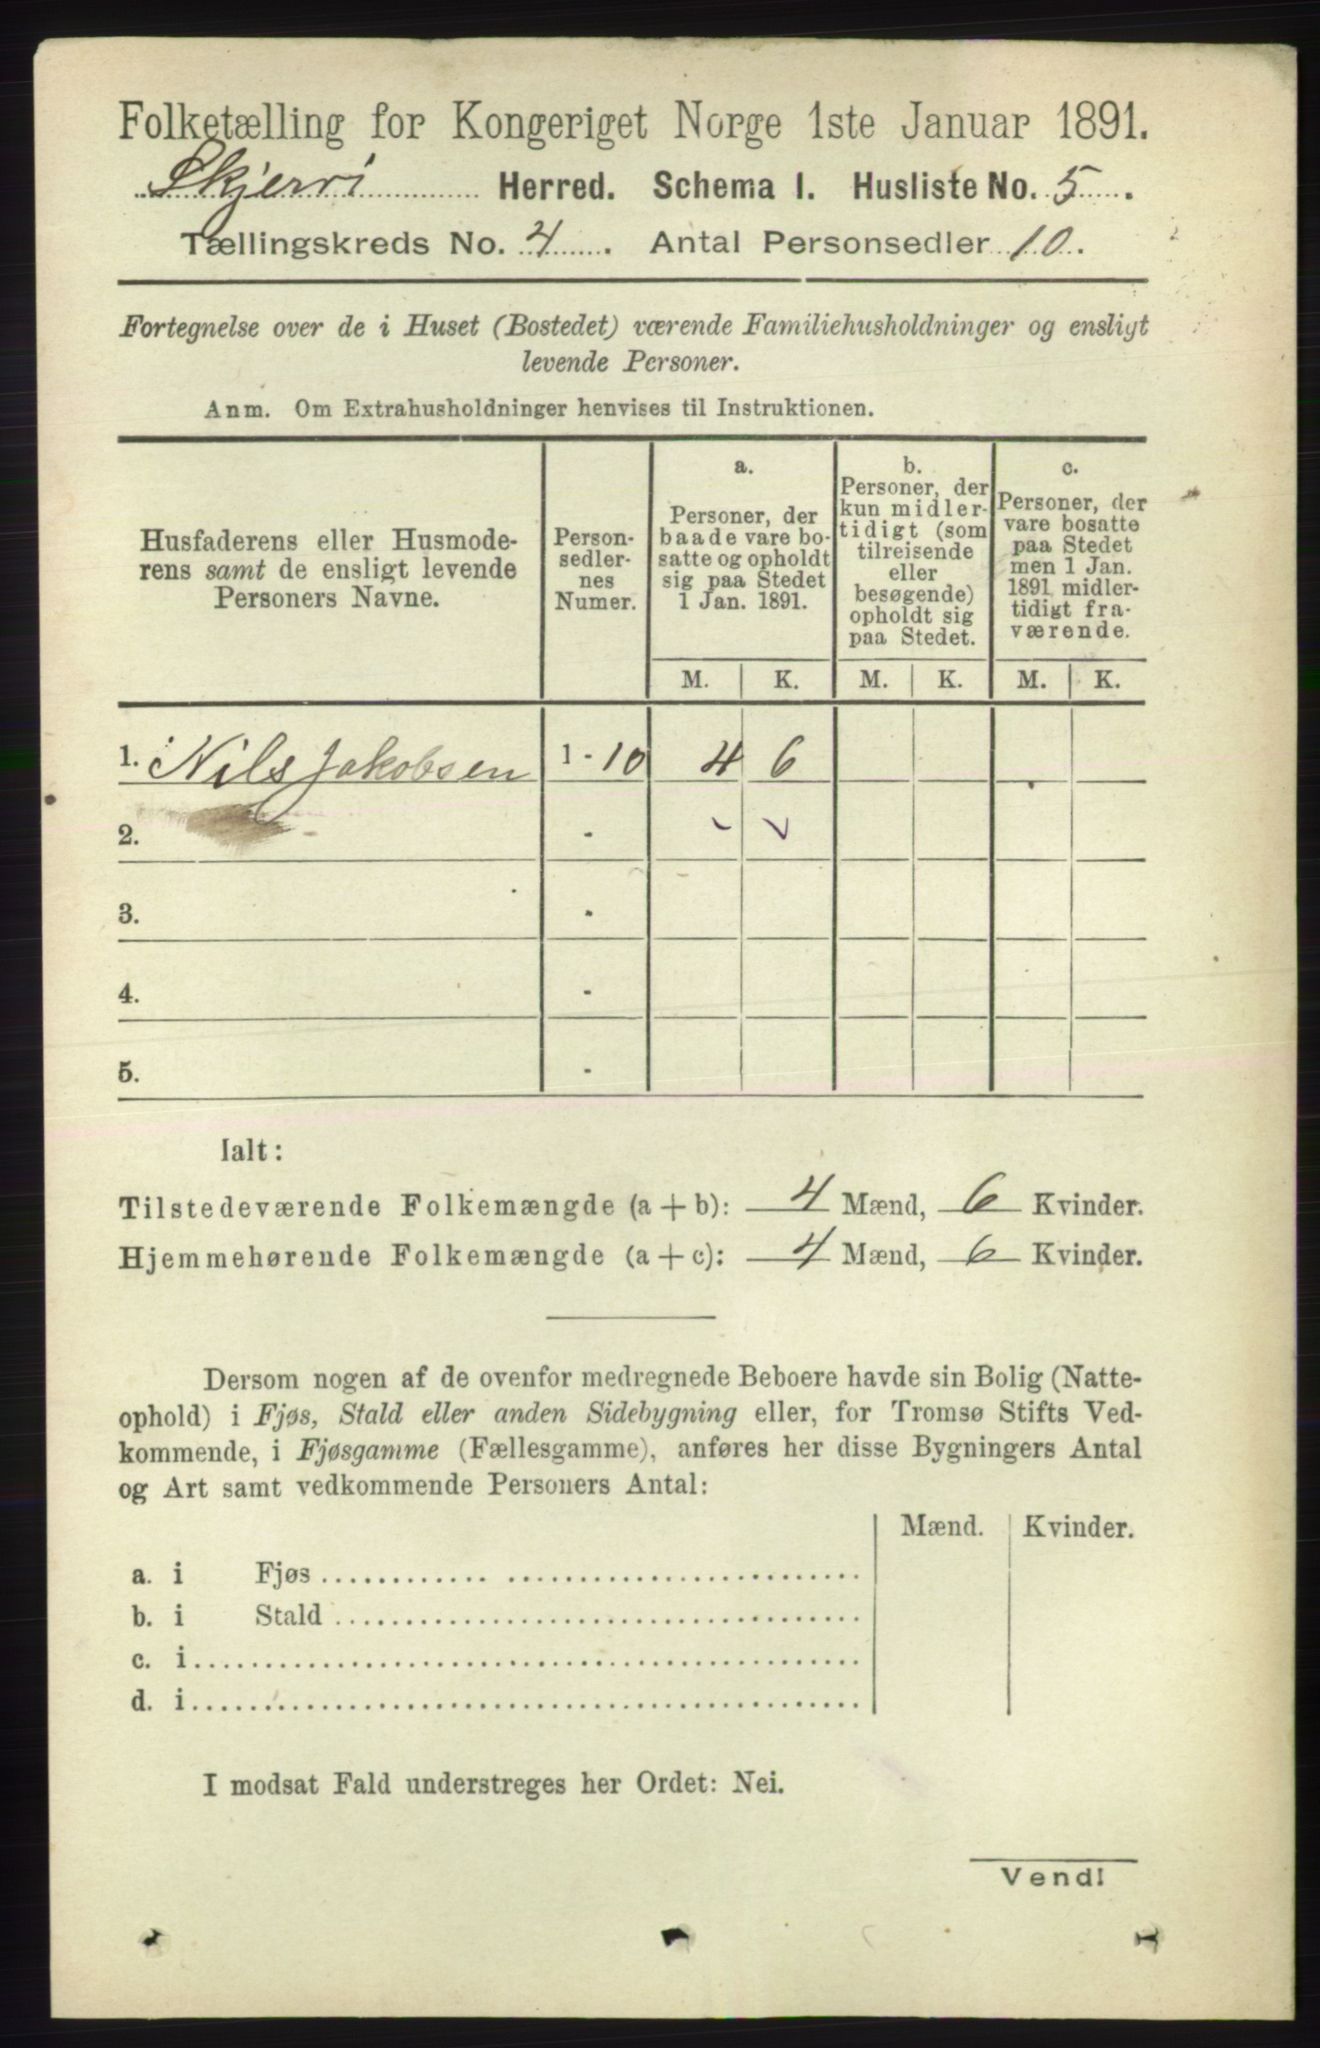 Folketælling for Kongeriget Norge 1ste Januar 1891.
Skjervø Herred. Schema I. Husliste No. 5.
Tællingskreds No. 4. Antal Personsedler 10.
Fortegnelse over de i Huset (Bostedet) værende Familiehusholdninger og ensligt
levende Personer.
Anm. Om Extrahusholdninger henvises til Instruktionen.
Husfaderens eller Husmode-
rens samt de ensligt levende
Personers Navne.
Person-
sedler-
nes
Numer.
a.
Personer, der
baade vare bo-
satte og opholdt
sig paa Stedet
1 Jan. 1891.
b.
Personer, der
kun midler-
tidigt (som
tilreisende
eller
besøgende)
opholdt sig
paa Stedet.
c.
Personer, der
vare bosatte
paa Stedet
men 1 Jan.
1891 midler-
tidigt fra-
værende.
M. K. M. K. M. K.
1. Nils Jakobsen 1 - 10 4 6
2. -
3. -
4. -
5. -
Ialt:
Tilstedeværende Folkemængde (a + b): 4 Mænd, 6 Kvinder.
Hjemmehørende Folkemængde (a + c): 4 Mænd, 6 Kvinder.
Dersom nogen af de ovenfor medregnede Beboere havde sin Bolig (Natte-
ophold) i Fjøs, Stald eller anden Sidebygning eller, for Tromsø Stifts Ved-
kommende, i Fjøsgamme (Fællesgamme), anføres her disse Bygningers Antal
og Art samt vedkommende Personers Antal:
Mænd. Kvinder.
a. i Fjøs
b. i Stald
c. i
d. i
I modsat Fald understreges her Ordet: Nei.
Vend!